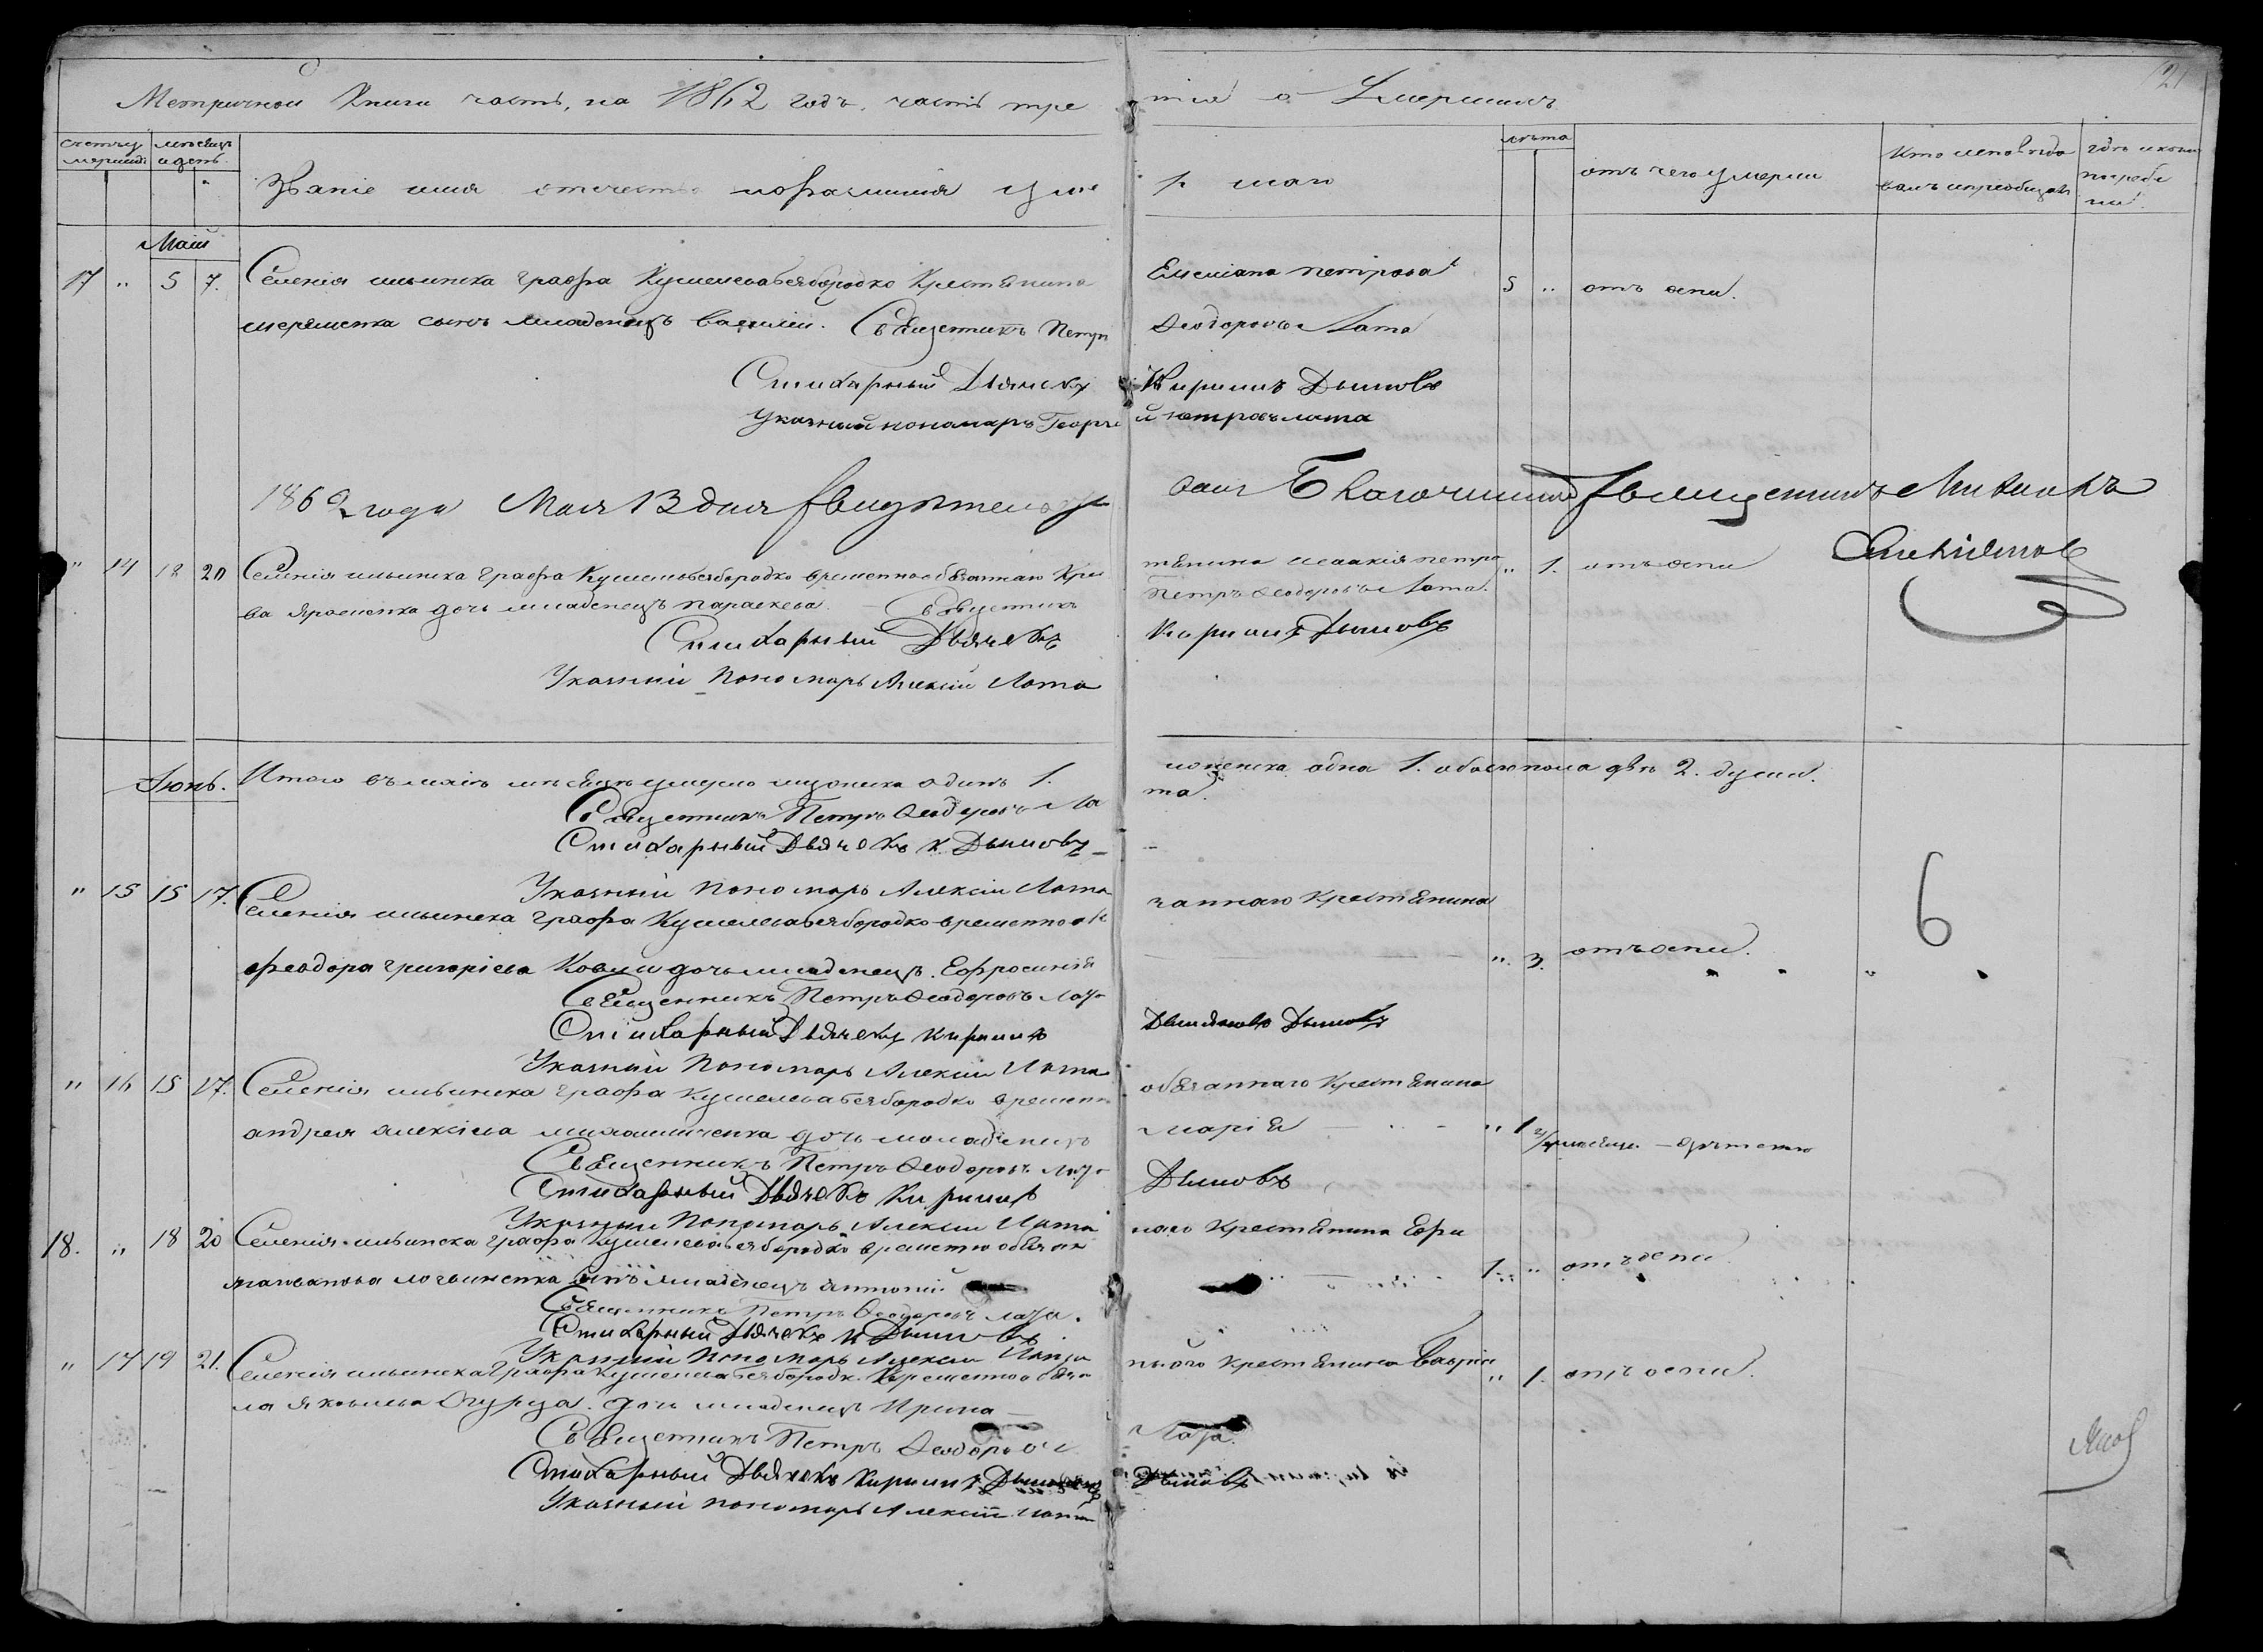 Метричной Книги часть, на 1862 годъ. часть третія о Умершихъ
121
счетъ умершихъ
мѣсяцъ и день
Званіе имя отечество и фамилія умершаго
лѣта
отъ чего умерли
Кто исповѣдовалъ и пріобщалъ
гдѣ и кѣмъ погребены
Май
17 " 5 7. Селенія ильинска графа Кушелева безбородко Крестьянина Емельяна петрова 5 " отъ оспи.
шеремета сынъ младенецъ василій. Священникъ Петръ Ѳеодоровъ Лата
Стихарный Дьячекъ Кирилъ Дымовъ
Указный пономарь Георгій петровъ лата
1862 года Мая 13 дня свидѣтельствовалъ Благочинный священникъ Михаилъ
" 14 18 20 Селенія ильинска графа Кушелева безбородко временнообязаннаго Крестьянина исаакія петрова " 1. отъ оспи
ва яроменка дочь младенецъ параскева. Священникъ Петръ Ѳеодоровъ Лата.
Стихарный Дьячекъ Кирилъ Дымовъ
Указный Пономарь Алексій Лата
Іюнь. Итого въ маѣ мѣсяцѣ умерло мужеска одинъ 1. женска одна 1. обоего пола двѣ 2. души.
Священникъ Петръ Ѳеодоровъ Лата.
Стихарный Дьячекъ К. Дымовъ
Указный Пономарь Алексій Лата
" 15 15 17. Селенія ильинска графа Кушелева безбородко временнообязаннаго Крестьянина
феодора григоріева Ковши дочь младенецъ Ефросинія " 3. отъ оспи.
6
Священникъ Петръ Ѳеодоровъ Лата
Стихарный Дьячекъ Кирилъ Дымовъ
Указный Пономарь Алексій Лата
" 16 15 17. Селенія ильинска графа Кушелева безбородко временнообязаннаго Крестьянина
андрея алексіева дочь младенецъ Марія " 1
Священникъ Петръ Ѳеодоровъ Лата
Стихарный Дьячекъ Кирилъ Дымовъ
Указный Пономарь Алексій Лата
18. " 18 20 Селенія ильинска графа Кушелева безбородко временно обязаннаго Крестьянина
логвиненка сынъ младенецъ антоній 1. " отъ оспи
Священникъ Петръ Ѳеодоровъ Лата.
Стихарный Дьячекъ К Дымовъ
Указный Пономарь Алексій Лата
" 17 19 21. Селенія ильинска графа Кушелева безбородко временнообязаннаго Крестьянина Гавріила " 1. отъ оспи.
яковлева Огурца. дочь младенецъ Ирина
Священникъ Петръ Ѳеодоровъ Лата.
Стихарный Дьячекъ Кирилъ Дымовъ
Указный пономарь Алексій Лата